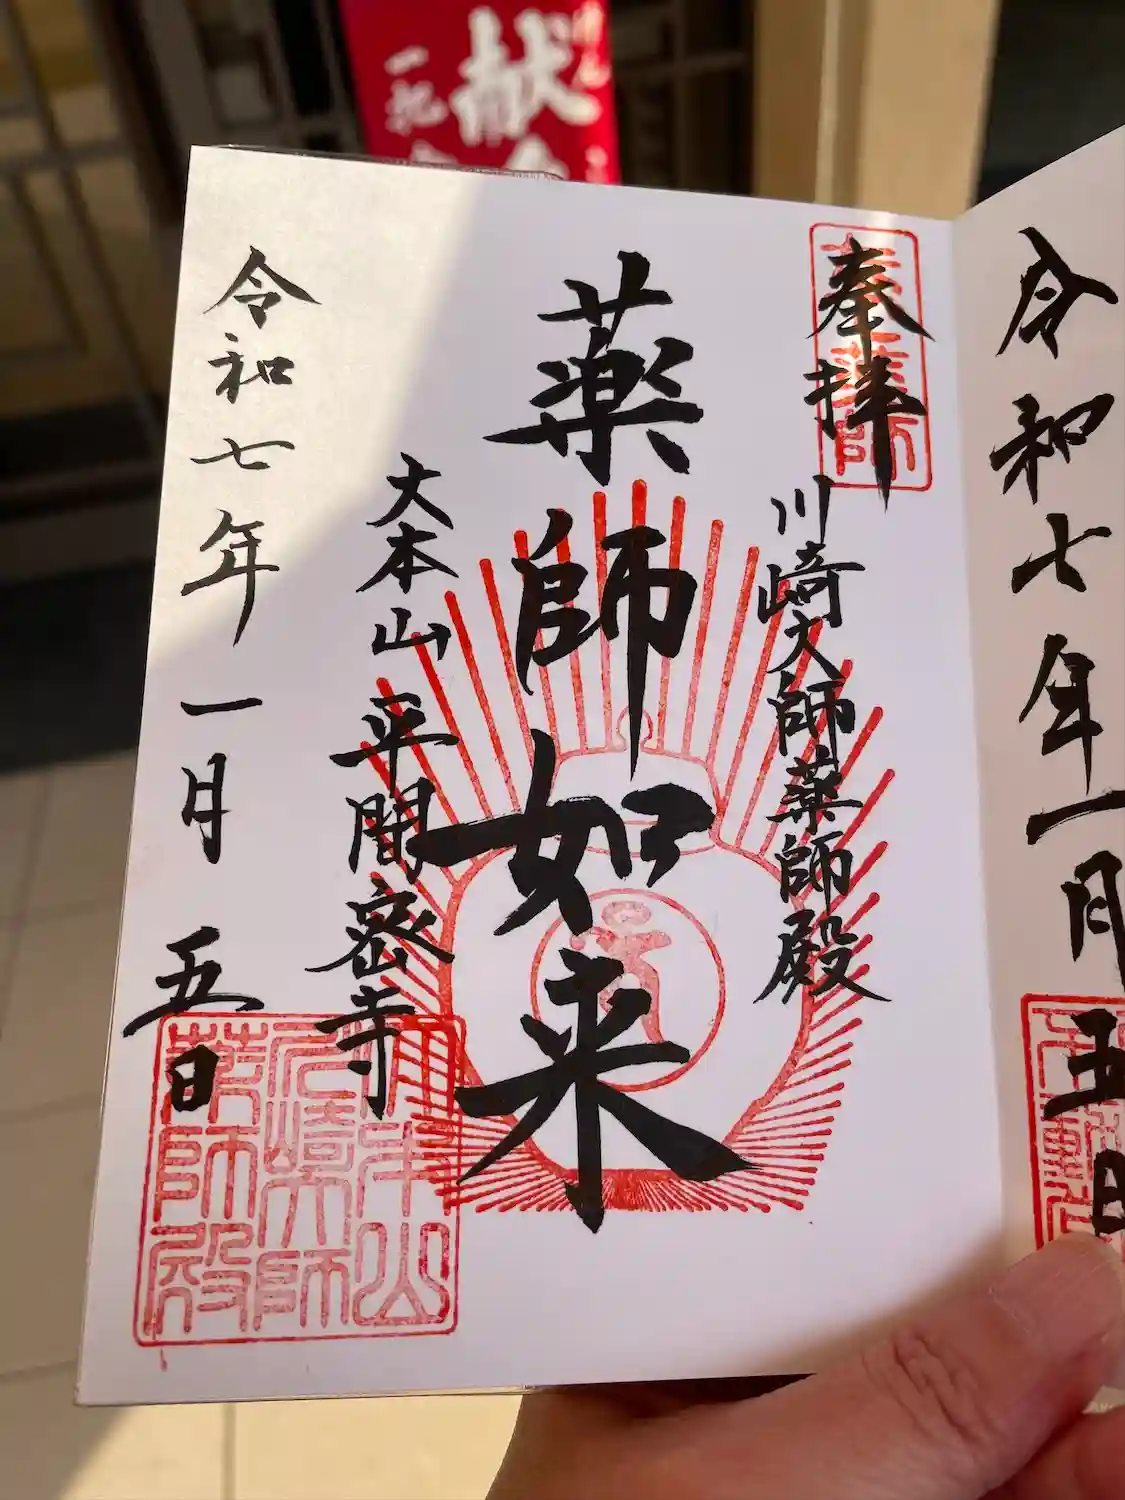 令和七年一月五日
奉拝
川崎大師薬師殿
薬師如来
大本山 平間密寺
令和七年一月五日
大本山
川崎大師
薬師殿
献